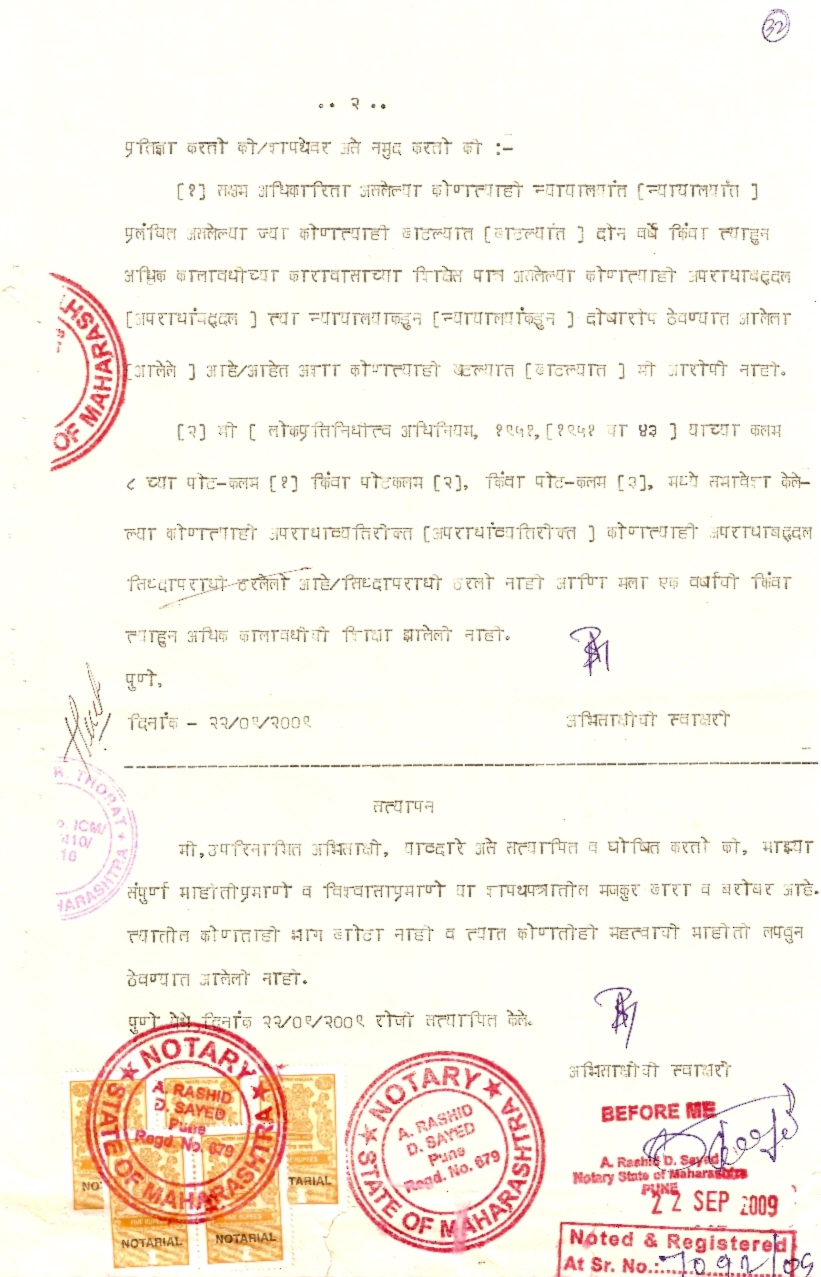 32
.. २ ..
प्रतिज्ञा करतो की/शपथेवर असे नमुद करतो की :-
[१] सक्षम अधिकारिता असलेल्या कोणत्याही न्यायालयांत [न्यायालयांत ]
प्रलंबित असलेल्या ज्या कोणत्याही खटल्यात [खटल्यांत ] दोन वर्षे किंवा त्याहुन
अधिक कालावधीच्या कारावासाच्या शिक्षेस पात्र असलेल्या कोणत्याही अपराधाबद्दल
[अपराधांबद्दल ] त्या न्यायालयाकडुन [न्यायालयांकडुन ] दोषारोप ठेवण्यात आलेला
[आलेले ] आहे/आहेत अशा कोणत्याही खटल्यात [खटल्यात ] मी आरोपी नाही.
[२] मी [ लोकप्रतिनिधीत्व अधिनियम, १९५१, [१९५१ चा ४३ ] याच्या कलम
८ च्या पोट-कलम [१] किंवा पोटकलम [२], किंवा पोट-कलम [३], मध्ये समावेश केले-
ल्या कोणत्याही अपराधाव्यतिरीक्त [अपराधांव्यतिरीक्त ] कोणत्याही अपराधाबद्दल
सिध्दापराधी ठरलेलो आहे/सिध्दापराधी ठरलो नाही आणि मला एक वर्षाची किंवा
त्याहुन अधिक कालावधीची शिक्षा झालेली नाही.
पुणे,
दिनांक - २२/०९/२००९
अभिसाक्षीची स्वाक्षरी
सत्यापन
मी,उपरिनामित अभिसाक्षी, याव्दारे असे सत्यापित व घोषित करतो की, माझ्या
संपुर्ण माहीतीप्रमाणे व विश्वासाप्रमाणे या शपथपत्रातील मजकुर खरा व बरोबर आहे.
त्यातील कोणताही भाग खोटा नाही व त्यात कोणतीही महत्वाची माहीती लपवुन
ठेवण्यात आलेली नाही.
पुणे येथे दिनांक २२/०९/२००९ रोजी सत्यापित केले.
अभिसाक्षीची स्वाक्षरी
OF MAHARASH
R. THORAT
ICM/
410/
10
HARASHTRA
NOTARY
A. RASHID
D. SAYED
Pune
Regd. No. 679
STATE OF MAHARASHTRA
NOTARIAL
NOTARIAL
NOTARY
A. RASHID
D. SAYED
Pune
Regd. No. 679
STATE OF MAHARASHTRA
BEFORE ME
A. Rashid D. Sayed
Notary State of Maharashtra
PUNE
22 SEP 2009
Noted & Registered
At Sr. No.: 7092/09